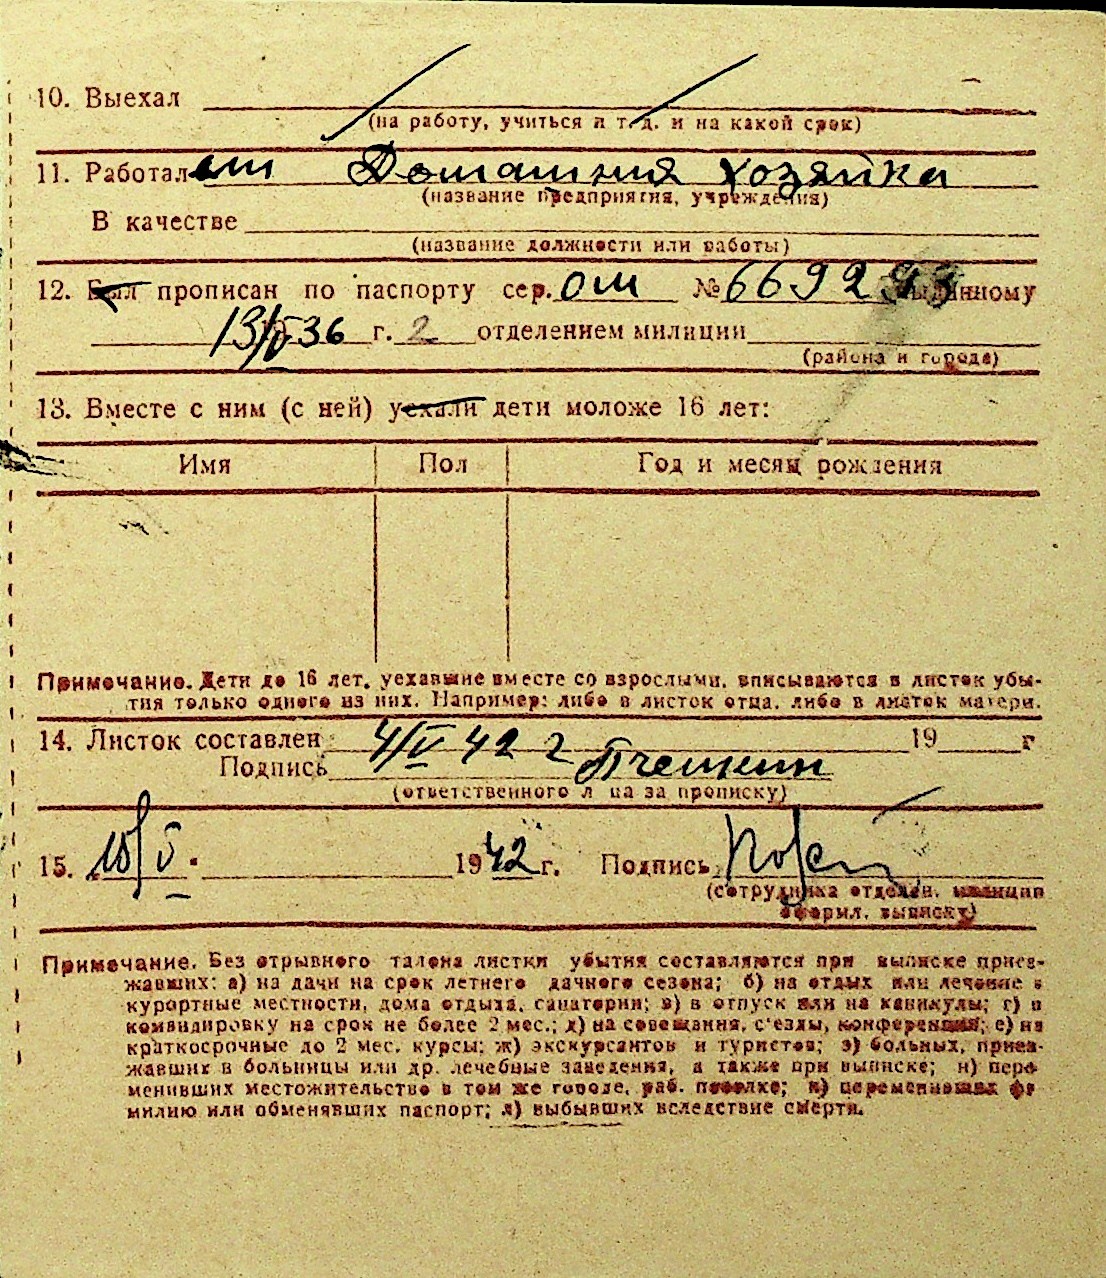 10. Выехал
(на работу, учиться и т. д. и на какой срок)
11. Работал Домашняя хозяйка
(название предприятия, учреждения)
В качестве
(название должности или работы)
12. Был прописан по паспорту сер. ОШ № 669293 выданному
13/V 36 г. 2 отделением милиции
(района и города)
13. Вместе с ним (с ней) уехали дети моложе 16 лет:
Имя Пол Год и месяц рождения
Примечание. Дети до 16 лет, уехавшие вместе со взрослыми, вписываются в листок убы-
тия только одного из них. Например: либо в листок отца, либо в листок матери.
14. Листок составлен 4/V 42 г 19 г
Подпись
(ответственного лица за прописку)
15. 10/V. 1942 г. Подпись
(сотрудника отделен. милиции
оформл. выписку)
Примечание. Без отрывного талона листки убытия составляются при выписке приез-
жавших: а) на дачи на срок летнего дачного сезона; б) на отдых или лечение в
курортные местности, дома отдыха, санатории; в) в отпуск или на каникулы; г) в
командировку на срок не более 2 мес.; д) на совещания, с'езды, конференции; е) на
краткосрочные до 2 мес. курсы; ж) экскурсантов и туристов; з) больных, приез-
жавших в больницы или др. лечебные заведения, а также при выписке; и) пере-
менивших местожительство в том же городе, раб. поселке; к) переменивших фа-
милию или обменявших паспорт; л) выбывших вследствие смерти.